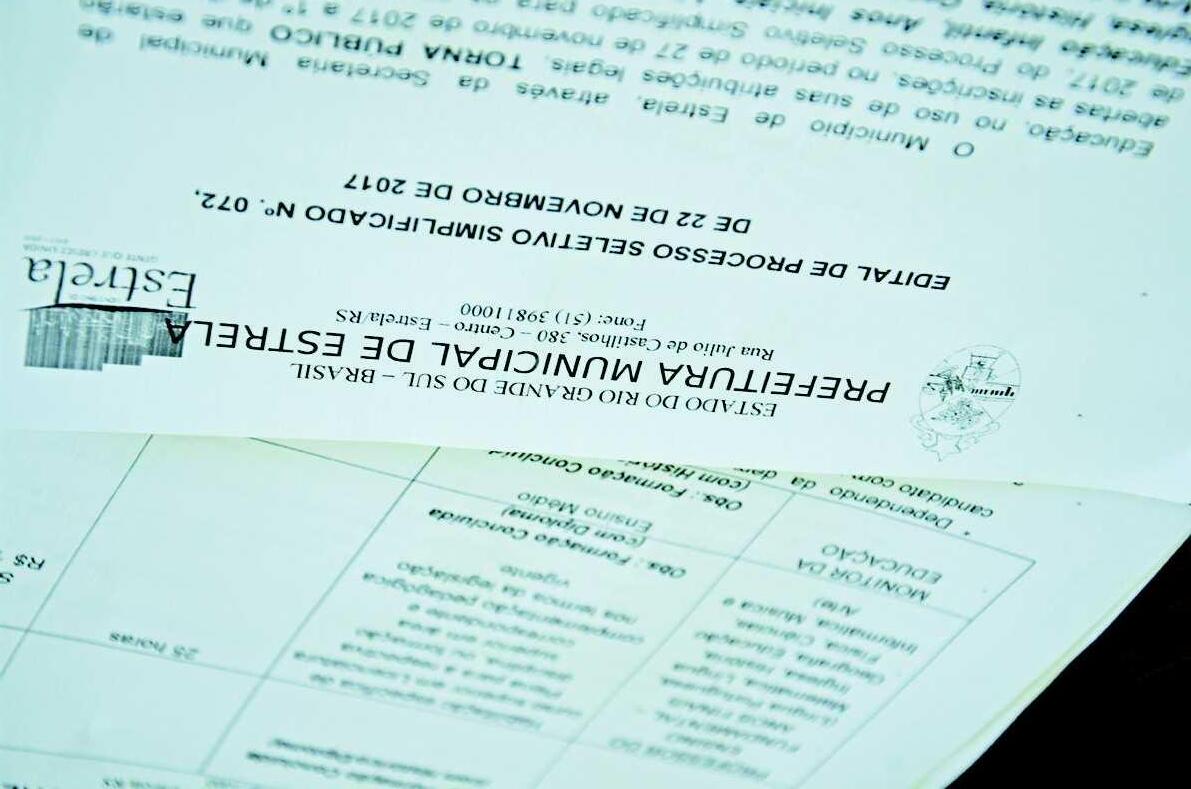 ESTADO DO RIO GRANDE DO SUL – BRASIL
PREFEITURA MUNICIPAL DE ESTRELA
Rua Julio de Castilhos, 380 – Centro – Estrela/RS
Fone: (51) 39811000
Estrela
EDITAL DE PROCESSO SELETIVO SIMPLIFICADO Nº. 072,
DE 22 DE NOVEMBRO DE 2017
O Município de Estrela, através da Secretaria Municipal de
Educação, no uso de suas atribuições legais, TORNA PÚBLICO que estarão
abertas as inscrições, no período de 27 de novembro de 2017 a 1º de
de 2017, do Processo Seletivo Simplificado para
Educação Infantil, Anos Iniciais
Inglesa, História,
Dependendo da
candidato com
MONITOR DA
EDUCAÇÃO
Obs.: Formação Concluída
(com Histórico
Ensino Médio
(com Diploma)
Obs.: Formação Concluída
PROFESSOR DO
ENSINO
FUNDAMENTAL
ANOS FINAIS
(Língua Portuguesa,
Matemática, Língua
Inglesa, História,
Geografia, Educação
Física, Ciências,
Informática, Música e
Arte)
Habilitação específica de
curso superior em Licenciatura
Plena para a respectiva
disciplina ou formação
superior em área
correspondente e
complementação pedagógica
nos termos da legislação
vigente
25 horas
R$